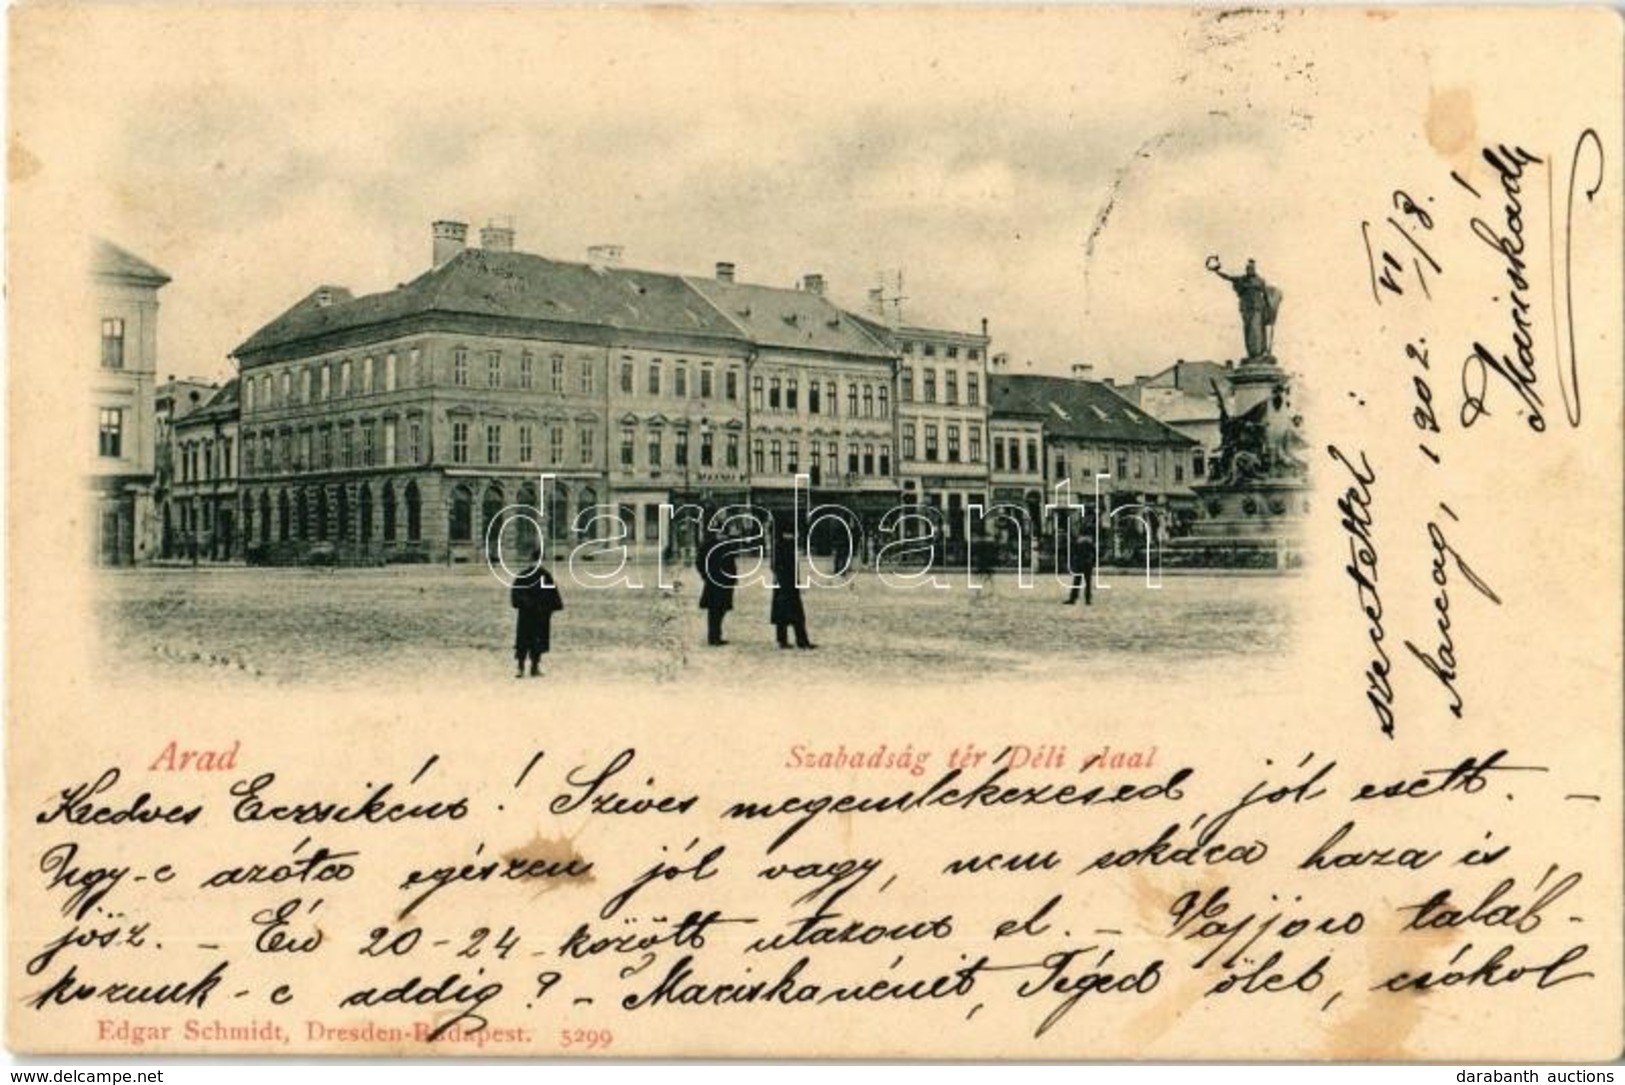 Arad
Szabadság tér Déli olaal
Kedves Erzsikém! Szíves megemlékezésed jól esett. –
Ugy-e azóta egészen jól vagy, nem sokára haza is
jösz. – Én 20-24 között utazom el. – Vajjon talál-
kozunk-e addig? – Mariskanénit, Téged ölel, csókol
szeretettel:
1902. VI/8.
Mariskád!
Edgar Schmidt, Dresden-Budapest. 5299
darabanth
www.delcampe.net
darabanth auctions